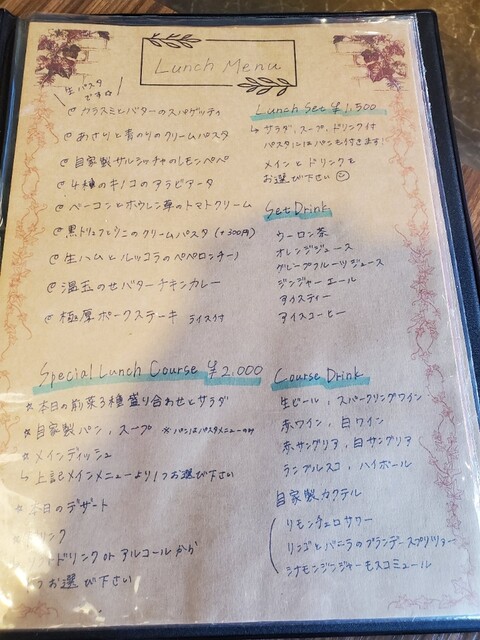 Lunch Menu
生パスタ
です☆
@ カラスミとバターのスパゲッティ
@ あさりと青のりのクリームパスタ
@ 自家製サルシッチャのレモンペペ
@ 4種のキノコのアラビアータ
@ ベーコンとホウレン草のトマトクリーム
@ 黒トリュフとウニのクリームパスタ (+300円)
@ 生ハムとルッコラのペペロンチーノ
@ 温玉のせバターチキンカレー
@ 極厚ポークステーキ ライス付
Lunch Set ¥1,500
↳ サラダ、スープ、ドリンク付
パスタにはパンも付きます!
メインとドリンクを
お選び下さい ☺
Set Drink
ウーロン茶
オレンジジュース
グレープフルーツジュース
ジンジャーエール
アイスティー
アイスコーヒー
Special Lunch Course ¥2,000
☆ 本日の前菜3種盛り合わせとサラダ
☆ 自家製パン、スープ ※パンはパスタメニューのみ
☆ メインディッシュ
↳ 上記メインメニューより1つお選び下さい
☆ 本日のデザート
リンク
ドリンク or アルコールから
つお選び下さい
Course Drink
生ビール、スパークリングワイン
赤ワイン、白ワイン
赤サングリア、白サングリア
ランブルスコ、ハイボール
自家製カクテル
リモンチェロサワー
リンゴとバニラのグランデースプリッツァー
シナモンジンジャーモスコミュール